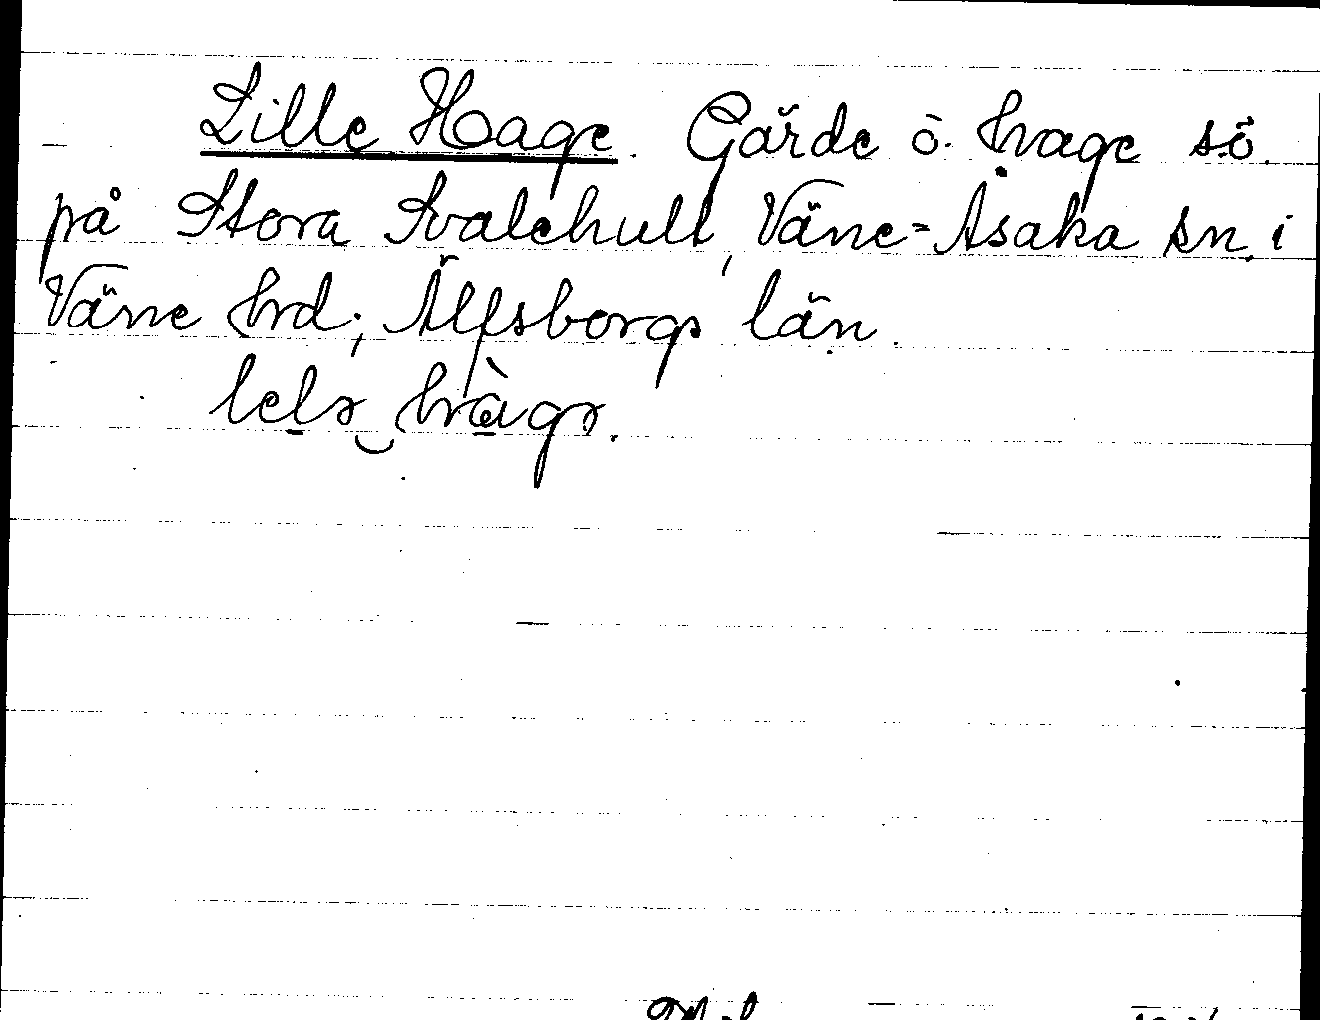 Lille Hage. Gärde o. hage sö.
på Stora Svalehult, Väne-Åsaka sn. i
Väne hrd; Älfsborgs län.